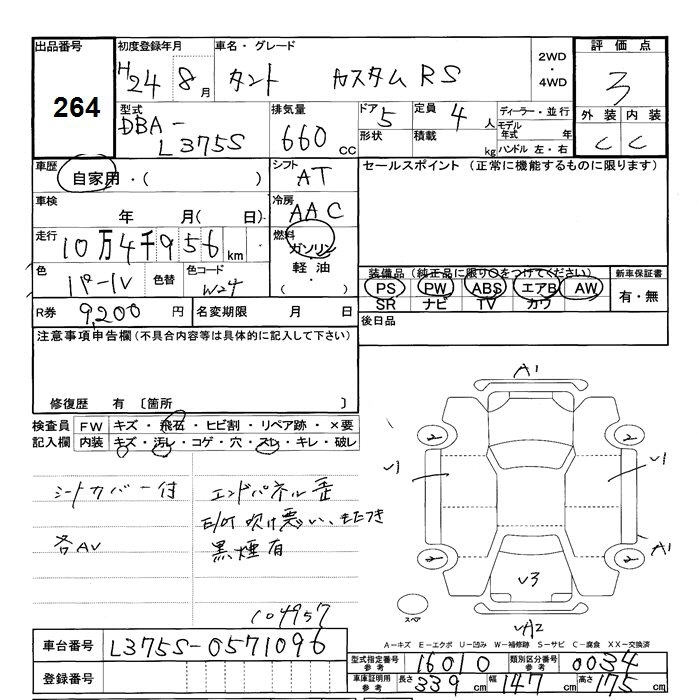 出品番号
264
初度登録年月
H24 8月
車名・グレード
タント カスタムRS
2WD
・
4WD
評価点
3
外装 内装
C C
型式
DBA-
L375S
排気量
660 cc
ドア 5
形状
定員 4人
積載 kg
ディーラー・並行
モデル年式 年
ハンドル 左・右
車歴
自家用・( )
シフト
AT
セールスポイント (正常に機能するものに限ります)
車検
年 月( 日)
冷房
AAC
走行
10万4千956km
燃料
ガソリン
軽油
・( )
色
パール
色替
色コード
W24
装備品(純正品に限り○をつけてください)
PS PW ABS エアB AW
SR ナビ TV カワ
新車保証書
有・無
R券 9,200円
名変期限 月 日
後日品
注意事項申告欄(不具合内容等は具体的に記入して下さい)
修復歴 有 〔箇所 〕
検査員 FW キズ・飛石・ヒビ割・リペア跡・×要
記入欄 内装 キズ・汚レ・コゲ・穴・スレ・キレ・破レ
シートカバー付
エンドパネル歪
E/OT 吹け悪い、
各AV
黒煙有
104957
A1
2 2
U1 U1
A1
2 2
U3
スペア
A-キズ E-エクボ U-凹み W-補修跡 S-サビ C-腐食 XX-交換済
車台番号 L375S-0571096
登録番号
型式指定番号
参考
16010
類別区分番号
参考
0034
車庫証明用
参考
長さ 339cm 幅 147cm 高さ 175cm